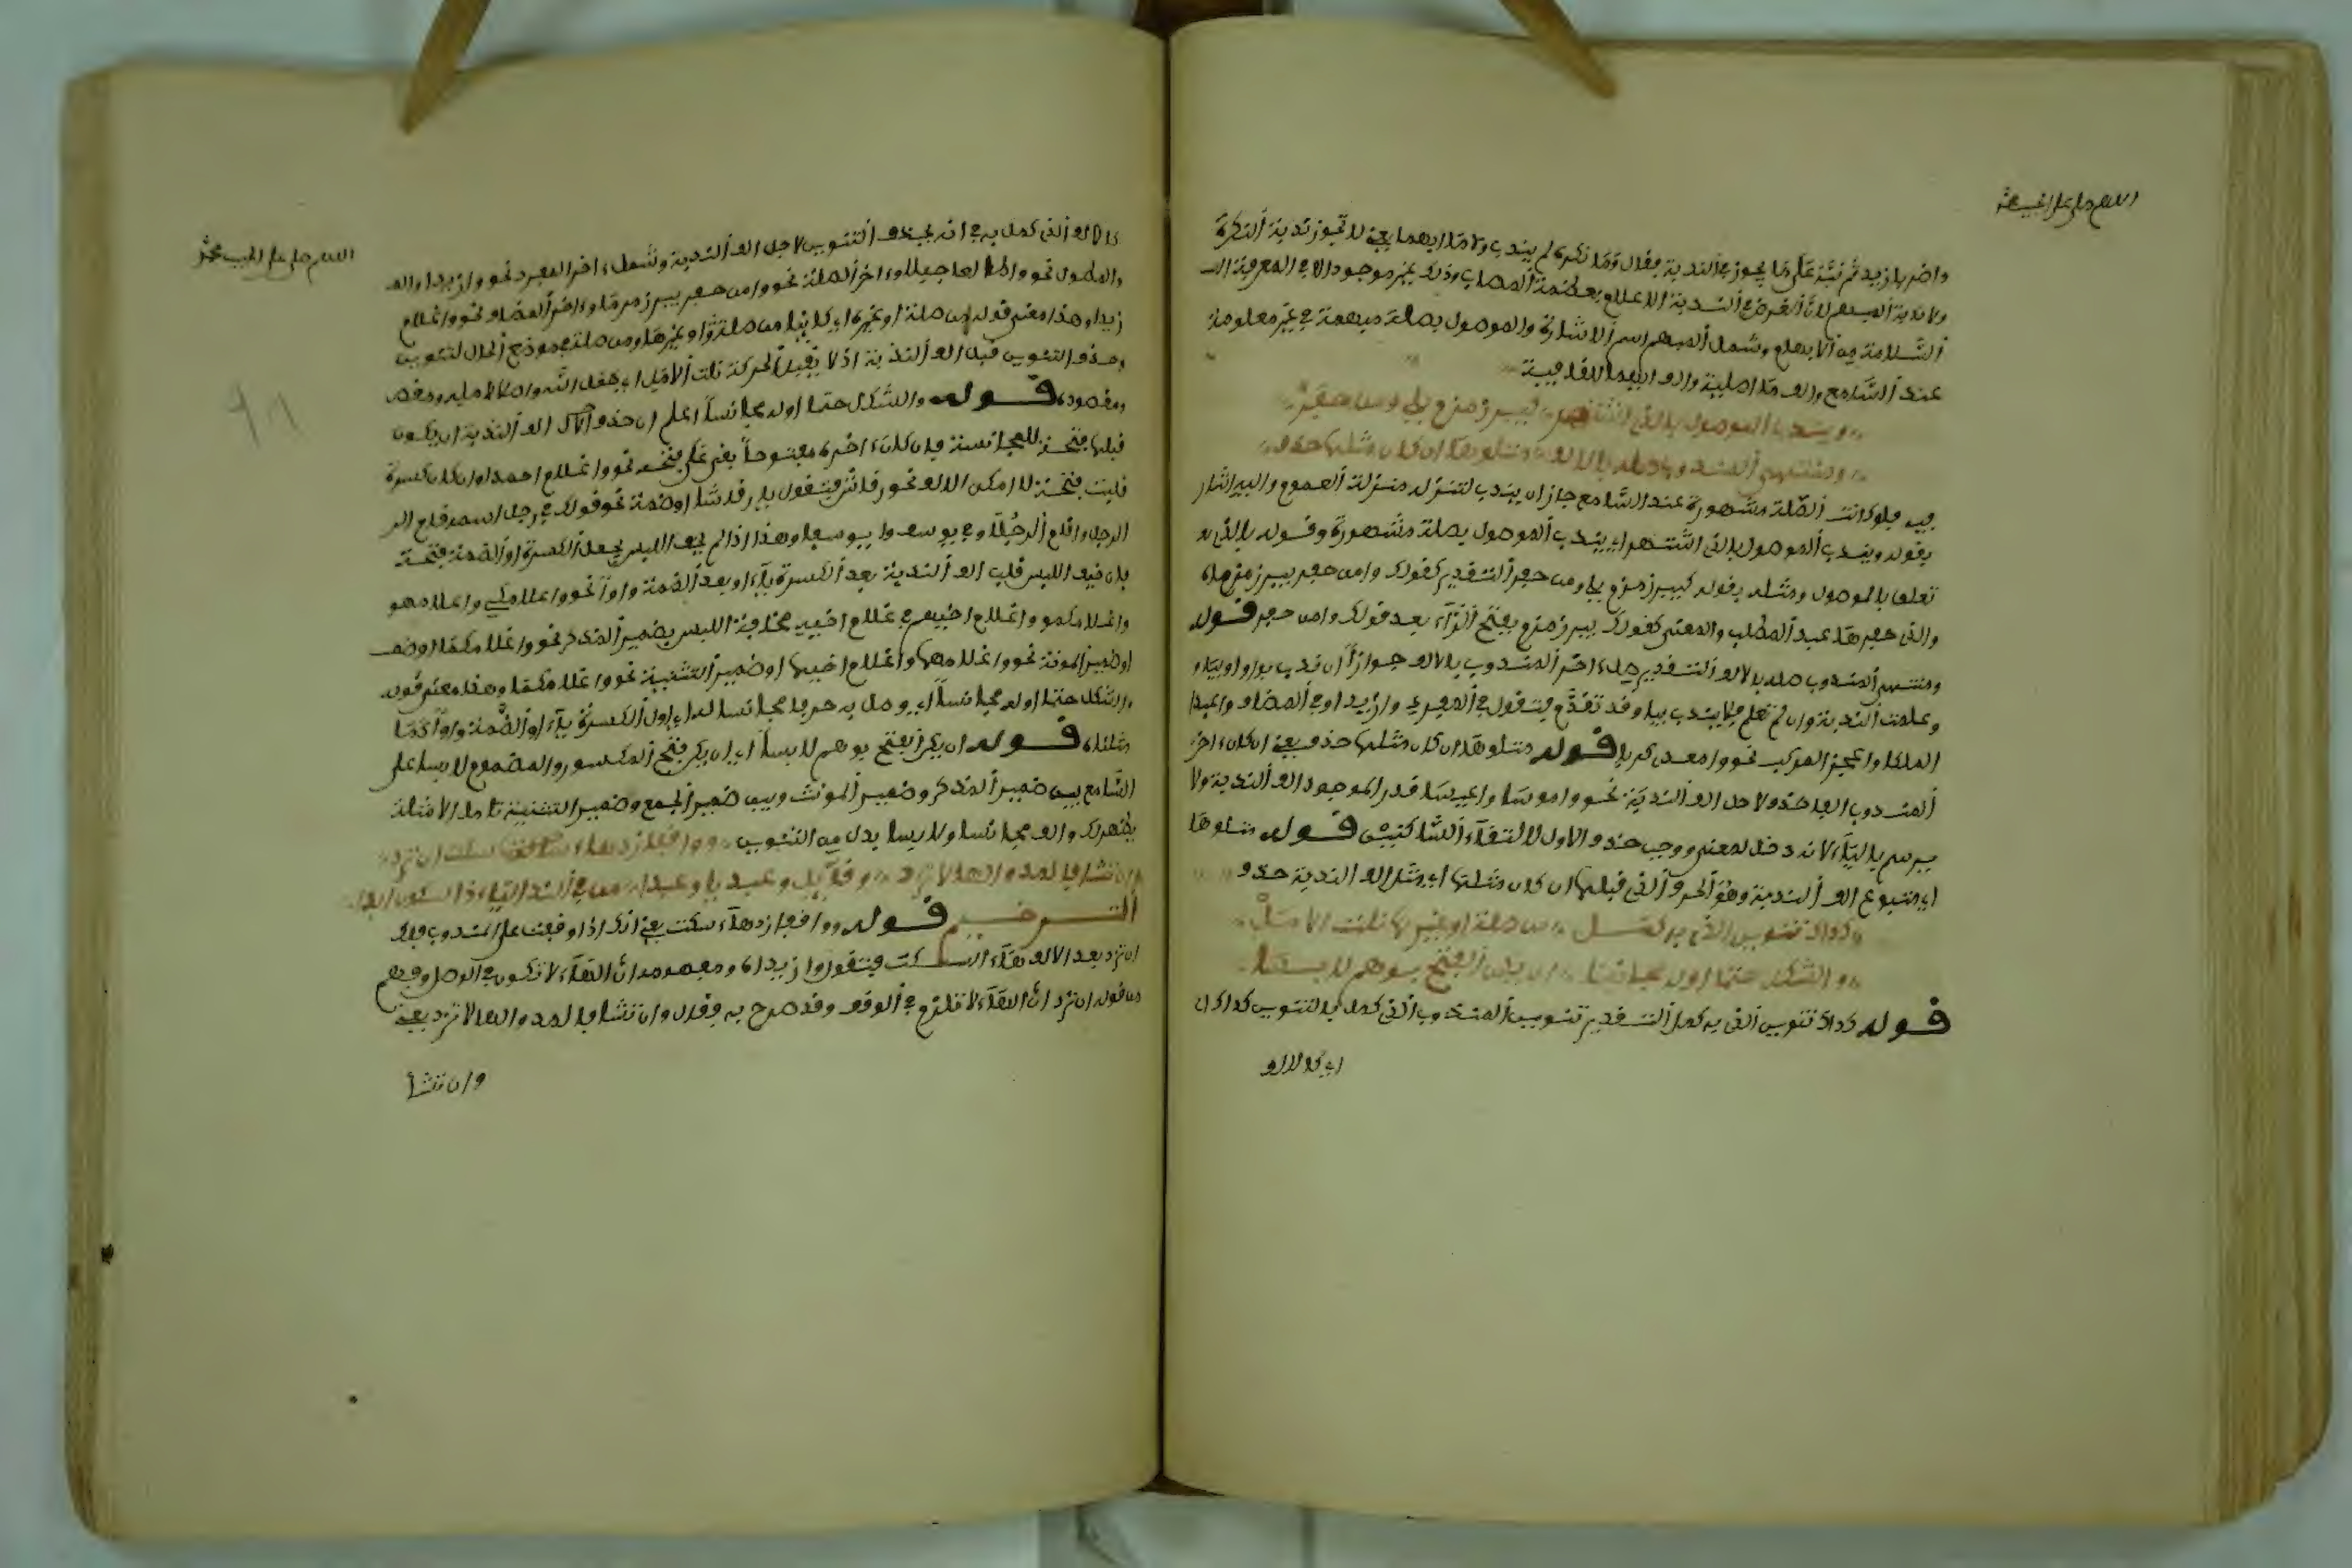 اللهم صل على الحبيب محمد
واضربا زيد ثم نبه على ما يجوز في الندبة فقال وما نكر لم يندب ولا ما ابهما يعني لا تجوز ندبة النكرة
ولا ندبة المبهم لان الغرض في الندبة الاعلام بعظمة المصاب وذلك غير موجود الا في المعرفة
السلامة من الابهام وشمل المبهم اسم الاشارة والموصول بصلة مبهمة اي غير معلومة
عند السامع والف ما اصلية والف ابهما للقافية
ويندب الموصول بالذي اشتهر كبير زمزم يلي وا من حفر
ومنتهى المندوب صله بالالف متلوها ان كان مثلها حذف
فيه فلو كانت الصلة مشهورة عند السامع جاز ان يندب لتنزله منزلة العموم واليه اشار
بقوله ويندب الموصول بالذي اشتهر اي يندب الموصول بصلة مشهورة وقوله بالذي
تعلق بالموصول ومثله بقوله كبير زمزم يلي وا من حفر التقدير كقولك وا من حفر بير زمزماه
والذي حفرها عبد المطلب والمعنى كقولك بير زمزم بفتح الزاء بعد قولك وا من حفر قوله
ومنتهى المندوب صله بالالف التقدير صل اخر المندوب بالالف جوازا ان ندب بوا او بيا و
وعلمت الندبة وان لم تعلم فلا يندب بيا وقد تقدم فتقول في المفرد وازيدا وفي المضاف واعبد
الملكا وعجز المركب نحو وامعدي كربا قوله متلوها ان كان مثلها حذف يعني ان كان اخر
المندوب الفا حذف لاجل الف الندبة نحو واموسا واعيسا قدر الموجود الف الندبة ولا
يرسم بالياء لانه دخل لمعنى ووجب حذف الاول لالتقاء الساكنين قوله متلوها
اي متبوع الف الندبة وهو الحرف الذي قبلها ان كان مثلها اي مثل الف الندبة حذف
كذاك تنوين الذي به كمل من صلة او غيرها نلت الامل
والشكل حتما اوله مجانسا ان يكن الفتح بوهم لابسا
قوله كذاك تنوين الذي به كمل التقدير تنوين المندوب الذي كمل بالتنوين كذاك
اي كالالف
اللهم صل على الحبيب محمد
كالالف الذي كمل به في انه يحذف التنوين لاجل الف الندبة وشمل اخر المفرد نحو وازيدا
والمطول نحو واطالعا جبلا واخر الصلة نحو وا من حفر بير زمزما واخر المضاف نحو واغلام
زيدا وهذا معنى قوله من صلة او غيرها اي كائنا من صلة او غيرها
وحذف التنوين قبل الف الندبة اذ لا يقبل الحركة نلت الامل اي
ومقصوده قوله والشكل حتما اوله مجانسا اعلم ان حذف الف الندبة ان يكون
قبلها فتحة للمجانسة فان كان اخره مفتوحا بقي على فتحه نحو واغلام احمدا وان كان كسرة
قلبت فتحة لامكن الالف نحو رقاش فتقول يا رقاشا او ضمة نحو قولك في رجل اسمه قام
الرجل واقام الرجلا وهذا اذا لم يخف اللبس بجعل الكسرة او الضمة فتحة
فان خيف اللبس قلب الف الندبة بعد الكسرة ياء او بعد الضمة واوا نحو واغلامكي واغلامهو
واغلامكمو واغلام اخيهم في غلام اخيه مخافة اللبس بضمير المذكر نحو واغلامكما او ضمـ
او ضمير المونثة نحو واغلامها واغلام اخيها او ضمير التثنية نحو واغلامكما وهذا معنى قوله
والشكل حتما اوله مجانسا اي وصل به حرفا مجانسا له اي اول الكسرة ياء او الضمة واوا كما
مثلناه قوله ان يكن الفتح بوهم لابسا اي ان يكن فتح المكسور والمضموم لابسا على
السامع بين ضمير المذكر وضمير المونث وبين ضمير الجمع وضمير التثنية تامل الامثلة
يظهر لك والف مجانسا ولابسا بدل من التنوين وواقفا زد هاء سكت ان ترد
وان تشا فالمد والها لا تزد وقائل وا عبديا وا عبدا من في الندا اليا ذا سكون ابدا
الترخيم قوله وواقفا زد هاء سكت يعني انك اذا وقفت على المندوب فلك
ان تزيد بعد الالف هاء السكت فتقول وا زيداه ومفهومه ان الهاء لا تكون في الوصل وفهم
من قوله ان ترد ان الهاء لا تلزم في الوقف وقد صرح به فقال وان تشا فالمد والها لا تزد يعني
وان تشا